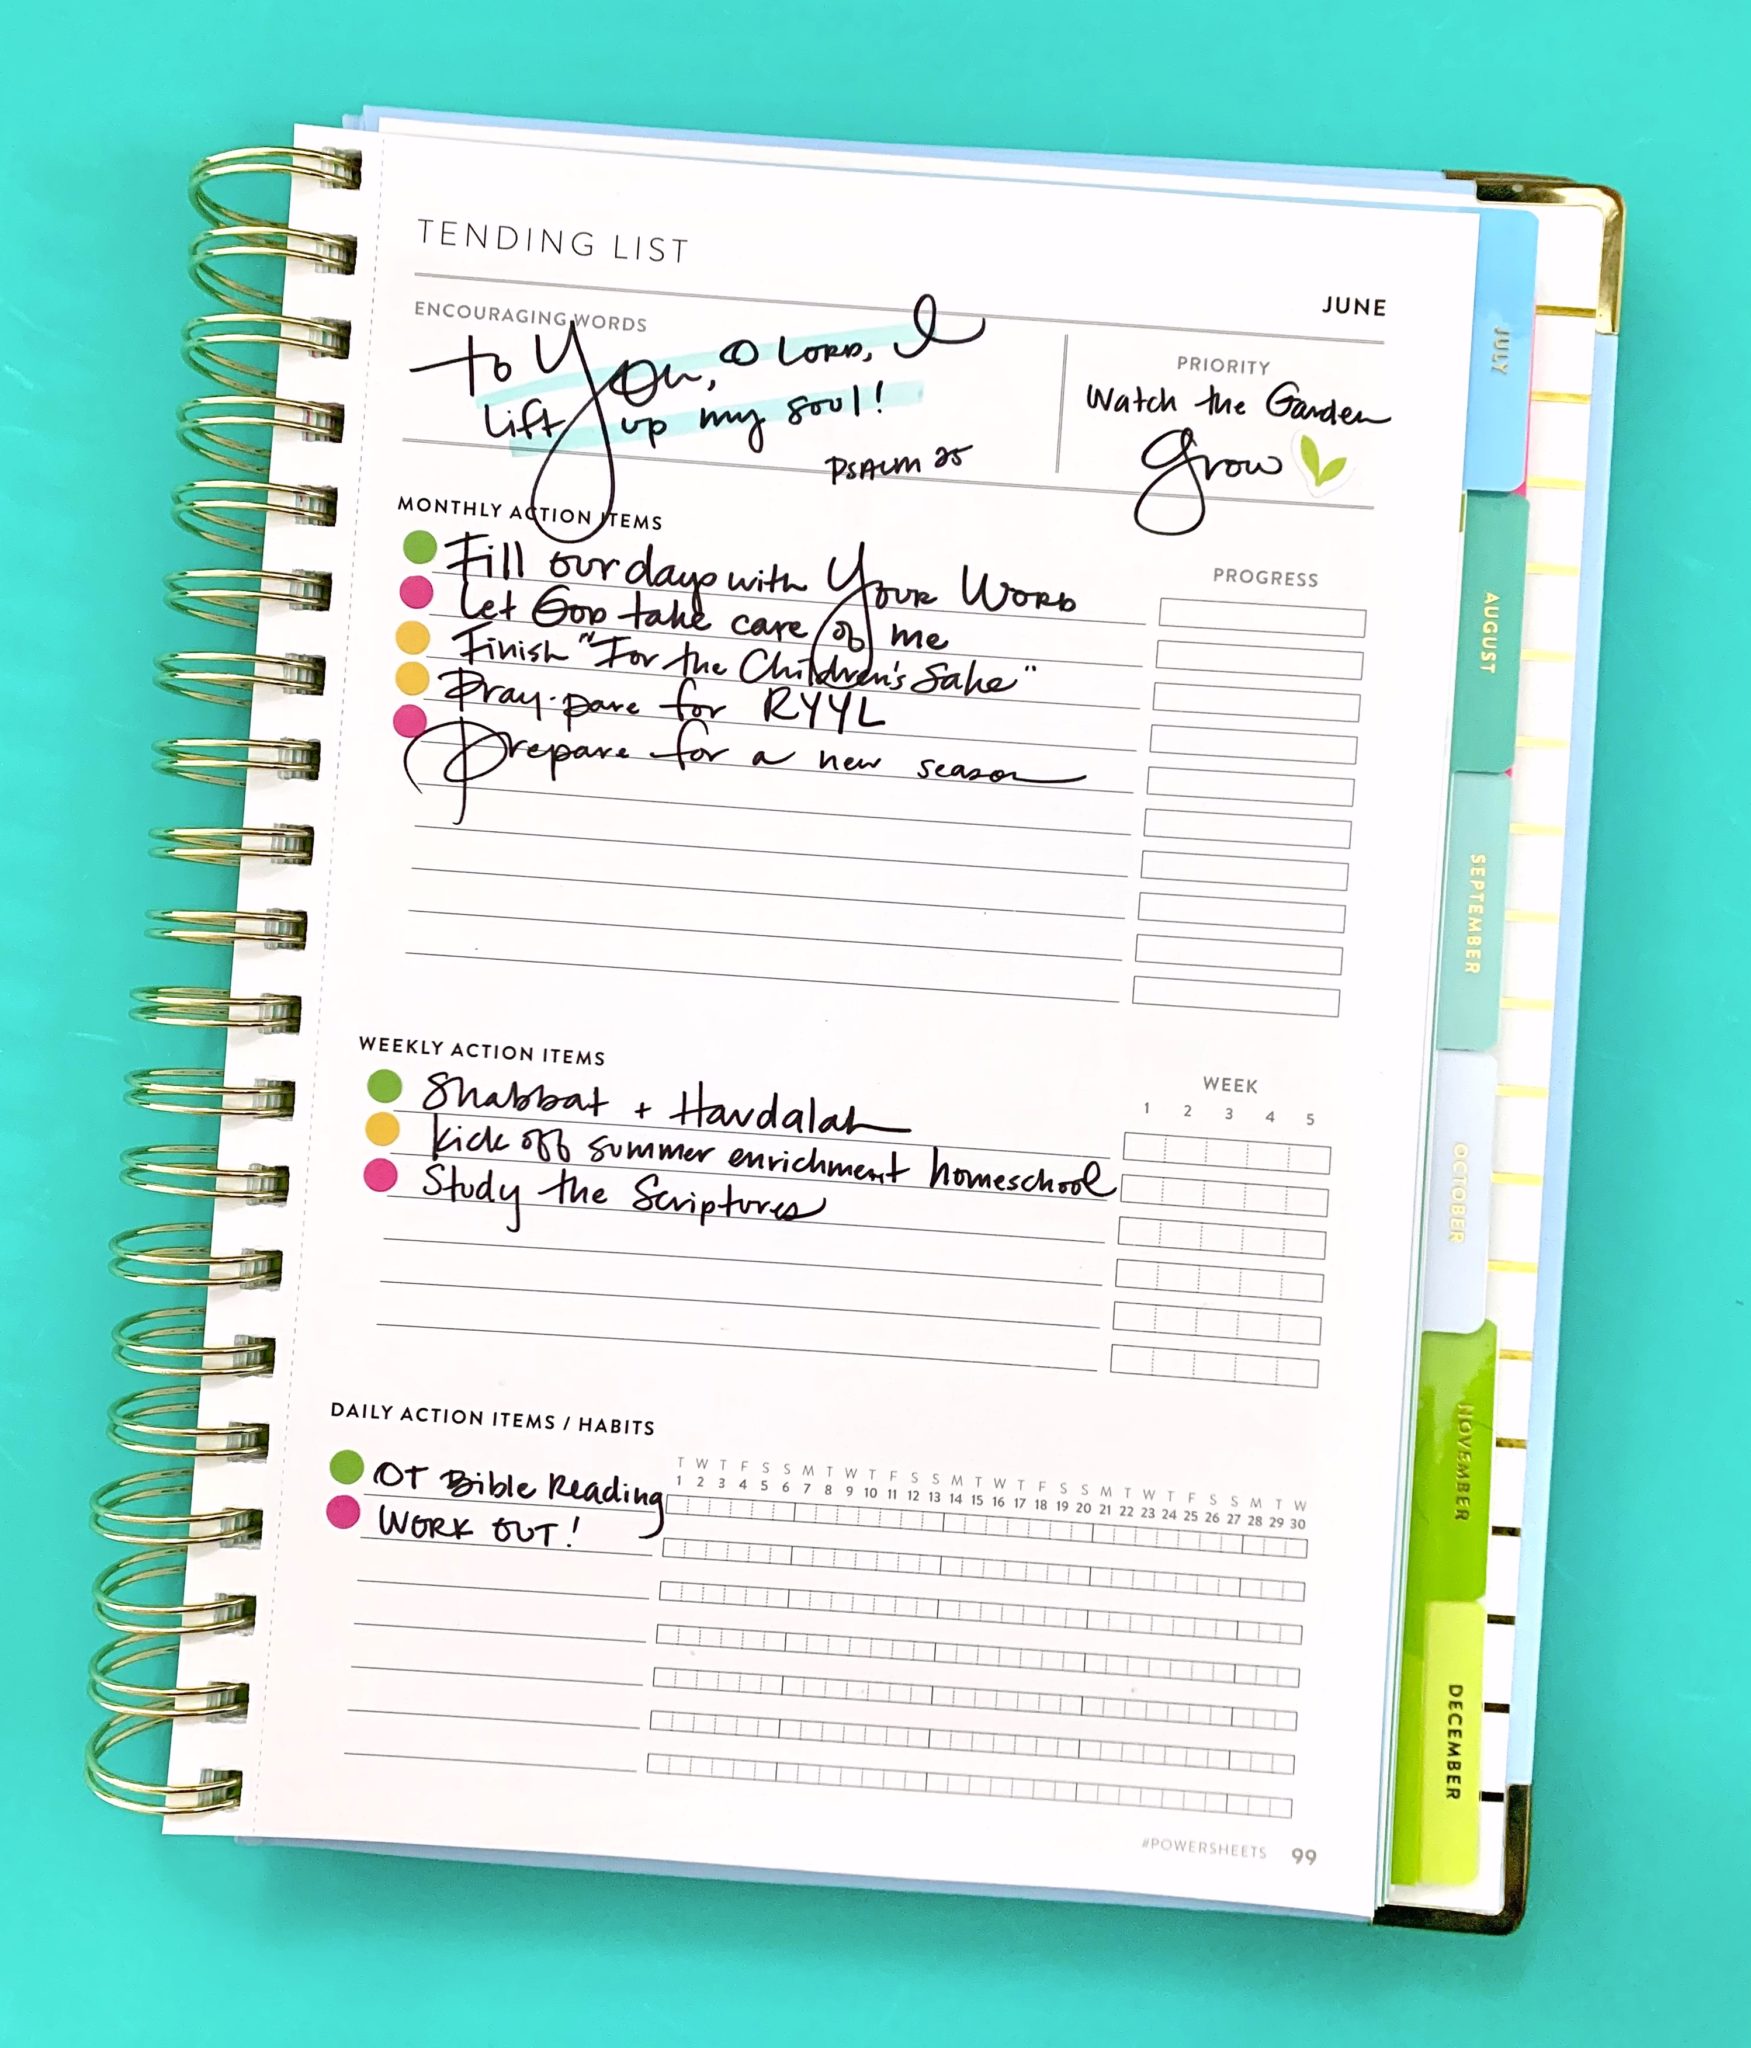 TENDING LIST
JUNE
ENCOURAGING WORDS
to You, O LORD, I
lift up my soul!
PSALM 25
PRIORITY
Watch the Garden
Grow
MONTHLY ACTION ITEMS
PROGRESS
Fill our days with Your Word
Let God take care of me
Finish "For the Children's Sake"
Pray·pare for RYYL
Prepare for a new season
WEEKLY ACTION ITEMS
WEEK
1 2 3 4 5
Shabbat + Havdalah
kick off summer enrichment homeschool
Study the Scriptures
DAILY ACTION ITEMS / HABITS
T W T F S S M T W T F S S M T W T F S S M T W T F S S M T W
1 2 3 4 5 6 7 8 9 10 11 12 13 14 15 16 17 18 19 20 21 22 23 24 25 26 27 28 29 30
OT Bible Reading
WORK OUT!
#POWERSHEETS 99
JULY
AUGUST
SEPTEMBER
OCTOBER
NOVEMBER
DECEMBER